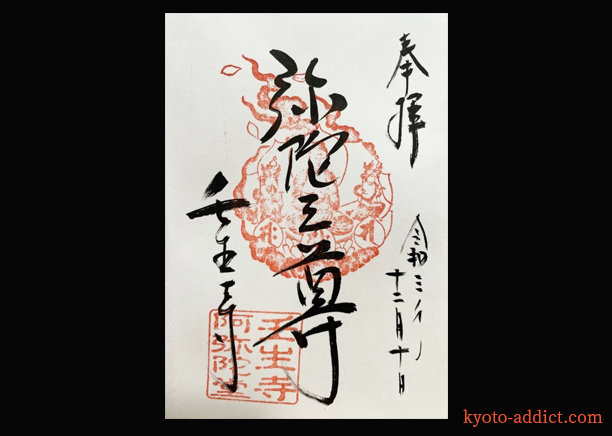 奉拝
令和三年
十二月十日
弥陀三尊
壬生寺
壬生寺
阿弥陀堂
kyoto-addict.com